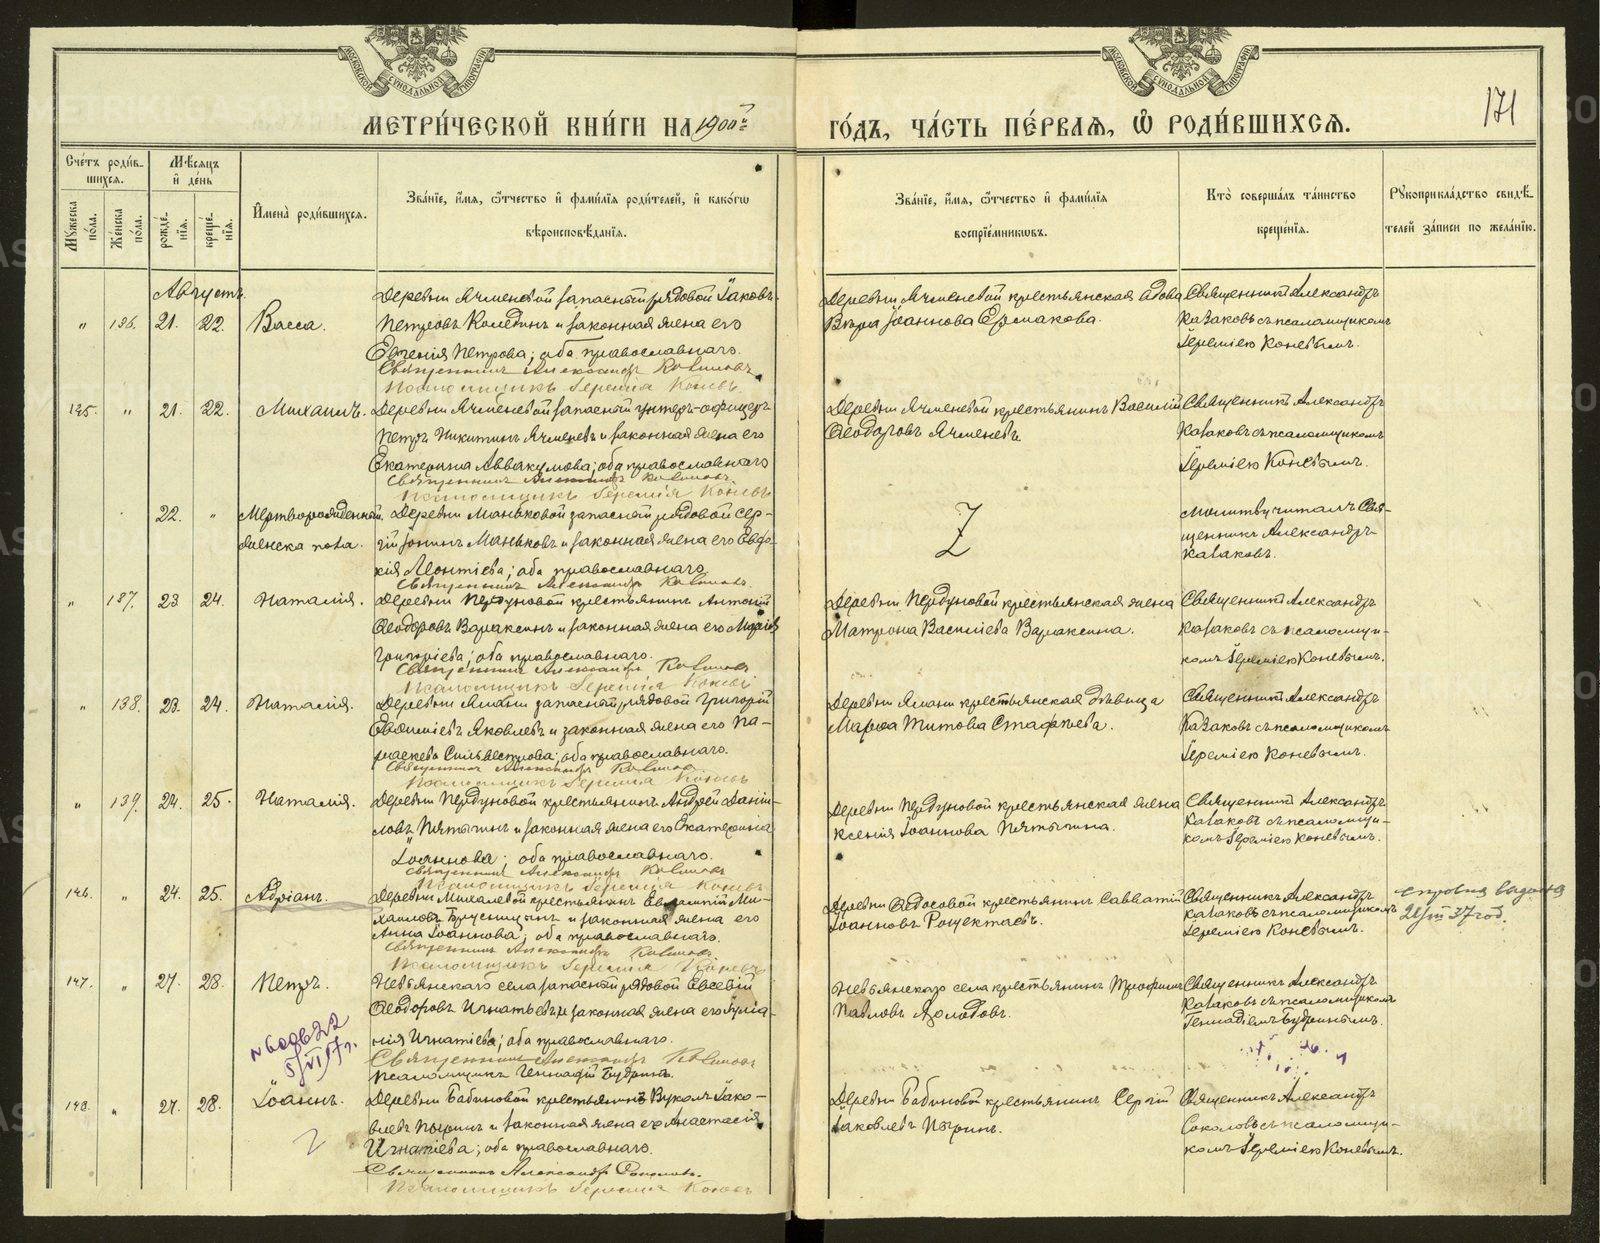 МОСКОВСКОЙ СУНОДАЛЬНОЙ ТИПОГРАФІИ
МОСКОВСКОЙ СУНОДАЛЬНОЙ ТИПОГРАФІИ
МЕТРИ́ЧЕСКОЙ КНИ́ГИ НА 1900й
ГО́ДЪ, ЧА́СТЬ ПЕ́РВАѦ, Ѡ҆ РОДИ́ВШИХСѦ.
171
Сче́тъ роди́в-
шихсѧ.
Мꙋ́жеска по́ла.
Же́нска по́ла.
Мѣ́сѧцъ
и҆ де́нь
рожде́-
нїѧ.
креще́-
нїѧ.
И҆мена̀ роди́вшихсѧ.
Зва́нїе, и҆́мѧ, ѻ҆́тчество и҆ фами́лїѧ роди́телей, и҆ како́гѡ
вѣроисповѣ́данїѧ.
Зва́нїе, и҆́мѧ, ѻ҆́тчество и҆ фами́лїѧ
воспрїе́мникѡвъ.
Кто̀ соверша́лъ та́инство
креще́нїѧ.
Рꙋкоприкла́дство свидѣ́-
телей за́писи по жела́нїю.
Августъ.
" 136. 21. 22. Васса.
Деревни Ячменевой запасный рядовой Іаковъ
Петровъ Коледина и законная жена его
Евгенія Петрова; оба православнаго.
Священникъ Александръ Казаковъ
Псаломщикъ Іеремія Коневъ
Деревни Ячменевой крестьянская вдова
Вѣра Іоаннова Ермакова.
Священникъ Александръ
Казаковъ съ псаломщикомъ
Іереміею Коневымъ.
145. " 21. 22. Михаилъ.
Деревни Ячменевой запасный унтеръ-офицеръ
Петръ Никитинъ Ячменевъ и законная жена его
Екатерина Аввакумова; оба православнаго
Священникъ Александръ Казаковъ
Псаломщикъ Іеремія Коневъ
Деревни Ячменевой крестьянинъ Василій
Ѳеодоровъ Ячменевъ
Священникъ Александръ
Казаковъ съ псаломщикомъ
Іереміею Коневымъ.
22. " Мертворожденный
женска пола.
Деревни Маньковой запасный рядовой Сер-
гій Іонинъ Маньковъ и законная жена его Евдо-
кія Леонтіева; оба православнаго
Священникъ Александръ Казаковъ
Z
Молитву читалъ Свя-
щенникъ Александръ
Казаковъ.
" 137. 23 24. Наталія.
Деревни Пердуновой крестьянинъ Антоній
Ѳеодоровъ Вараксинъ и законная жена его Марія
Григоріева; оба православнаго.
Священникъ Александръ Казаковъ
Псаломщикъ Іеремія Коневъ
Деревни Пердуновой крестьянская жена
Матрона Василіева Вараксина.
Священникъ Александръ
Казаковъ съ псаломщи-
комъ Іереміею Коневымъ.
" 138. 23. 24. Наталія.
Деревни Ямани запасный рядовой Григорій
Евѳиміевъ Яковлевъ и законная жена его Па-
раскева Сильвестрова; оба православнаго.
Священникъ Александръ Казаковъ
Псаломщикъ Іеремія Коневъ
Деревни Ямани крестьянская дѣвица
Марѳа Титова Стафѣева.
Священникъ Александръ
Казаковъ съ псаломщикомъ
Іереміею Коневымъ.
" 139. 24. 25. Наталія.
Деревни Пердуновой крестьянинъ Андрей Даніи-
ловъ Пятыгинъ и законная жена его Екатерина
Іоаннова; оба православнаго.
Священникъ Александръ Казаковъ
Псаломщикъ Іеремія Коневъ
Деревни Пердуновой крестьянская жена
Ксенія Іоаннова Пятыгина.
Священникъ Александръ
Казаковъ съ псаломщи-
комъ Іереміею Коневымъ.
146. " 24. 25. Адріанъ.
Деревни Михалевой крестьянинъ Евлампій Ми-
хаиловъ Брусницынъ и законная жена его
Анна Іоаннова; оба православнаго.
Священникъ Александръ Казаковъ
Псаломщикъ Іеремія Коневъ
Деревни Ѳедосовой крестьянинъ Савватій
Іоанновъ Рощектаевъ.
Священникъ Александръ
Казаковъ съ псаломщикомъ
Іереміею Коневымъ.
справка выдана
2/VIII 37 год.
147. " 27. 28. Петръ.
Невьянскаго села запасный рядовой Евсевій
Ѳеодоровъ Игнатьевъ и законная жена его Іуліа-
нія Игнатіева; оба православнаго.
Священникъ Александръ Казаковъ
Псаломщикъ Геннадій Будринъ.
Невьянскаго села крестьянинъ Трофимъ
Павловъ Холодовъ.
Священникъ Александръ
Казаковъ съ псаломщикомъ
Геннадіемъ Будринымъ.
N 600622
5/VI 57 г.
148. " 27. 28. Іоаннъ.
Деревни Бабиновой крестьянинъ Вуколъ Іако-
влевъ Пыринъ и законная жена его Анастасія
Игнатіева; оба православнаго.
Священникъ Александръ Соколовъ.
Псаломщикъ Іеремія Коневъ
Деревни Бабиновой крестьянинъ Сергій
Іаковлевъ Пыринъ.
Священникъ Александръ
Соколовъ съ псаломщи-
комъ Іереміею Коневымъ.